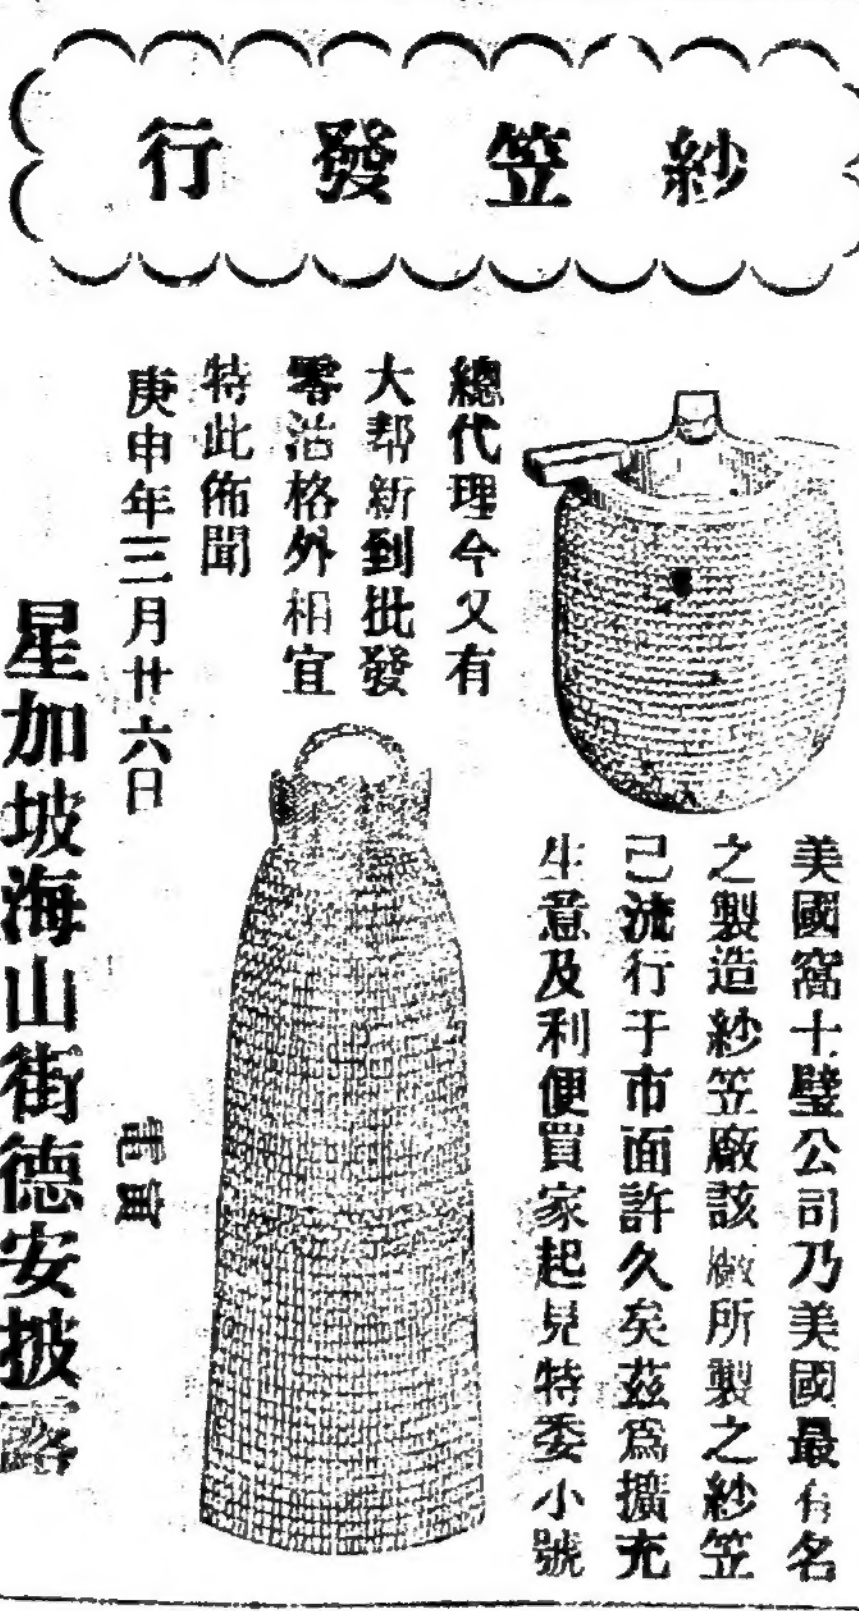 紗笠發行
美國窩士璧公司乃美國最有名
之製造紗笠廠該廠所製之紗笠
已流行于市面許久矣茲爲擴充
生意及利便買家起見特委小號
總代理今又有
大帮新到批發
零沽格外相宜
特此佈聞
庚申年三月廿六日
電寅
星加坡海山街德安披露